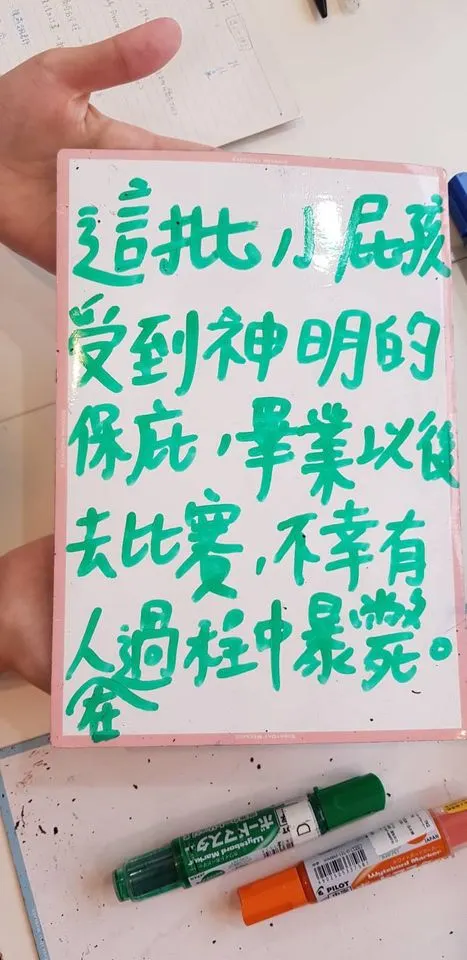 這批小屁孩
受到神明的
保庇,畢業以後
去比賽,不幸有
人過程中暴斃。
在
ボードマスタ
Wytebord Marker
D
PILOT
Wytebord Marker
JAPAN